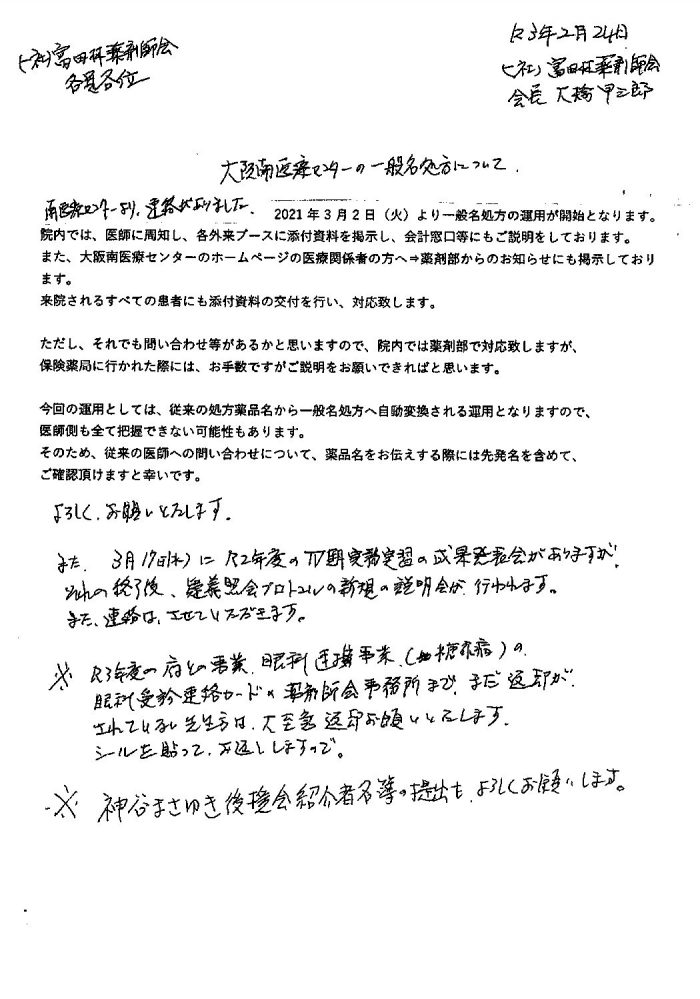 R3年2月24日
(一社)富田林薬剤師会
各位
(一社)富田林薬剤師会
会長 大橋 甲三郎
大阪南医療センターの一般名処方について
南医療センターより、連絡がありました。 2021年3月2日(火)より一般名処方の運用が開始となります。
院内では、医師に周知し、各外来ブースに添付資料を掲示し、会計窓口等にもご説明をしております。
また、大阪南医療センターのホームページの医療関係者の方へ⇒薬剤部からのお知らせにも掲示しており
ます。
来院されるすべての患者にも添付資料の交付を行い、対応致します。
ただし、それでも問い合わせ等があるかと思いますので、院内では薬剤部で対応致しますが、
保険薬局に行かれた際には、お手数ですがご説明をお願いできればと思います。
今回の運用としては、従来の処方薬品名から一般名処方へ自動変換される運用となりますので、
医師側も全て把握できない可能性もあります。
そのため、従来の医師への問い合わせについて、薬品名をお伝えする際には先発名を含めて、
ご確認頂けますと幸いです。
よろしく、お願いいたします。
また、3月17日(水)にR2年度のⅣ期実務実習の成果発表会がありますが、
それの終了後、疑義照会プロトコルの新規の説明会が、行われます。
また、連絡は、させていただきます。
※ R3年度の府との事業、眼科連携事業、(糖尿病)の、
眼科受診連絡カードを薬剤師会事務所まで、まだ返却が、
されていない先生方は、大至急返却お願いいたします。
シールを貼って、お返ししますので。
※ 神谷まさゆき後援会紹介者名簿の提出も、よろしくお願いします。